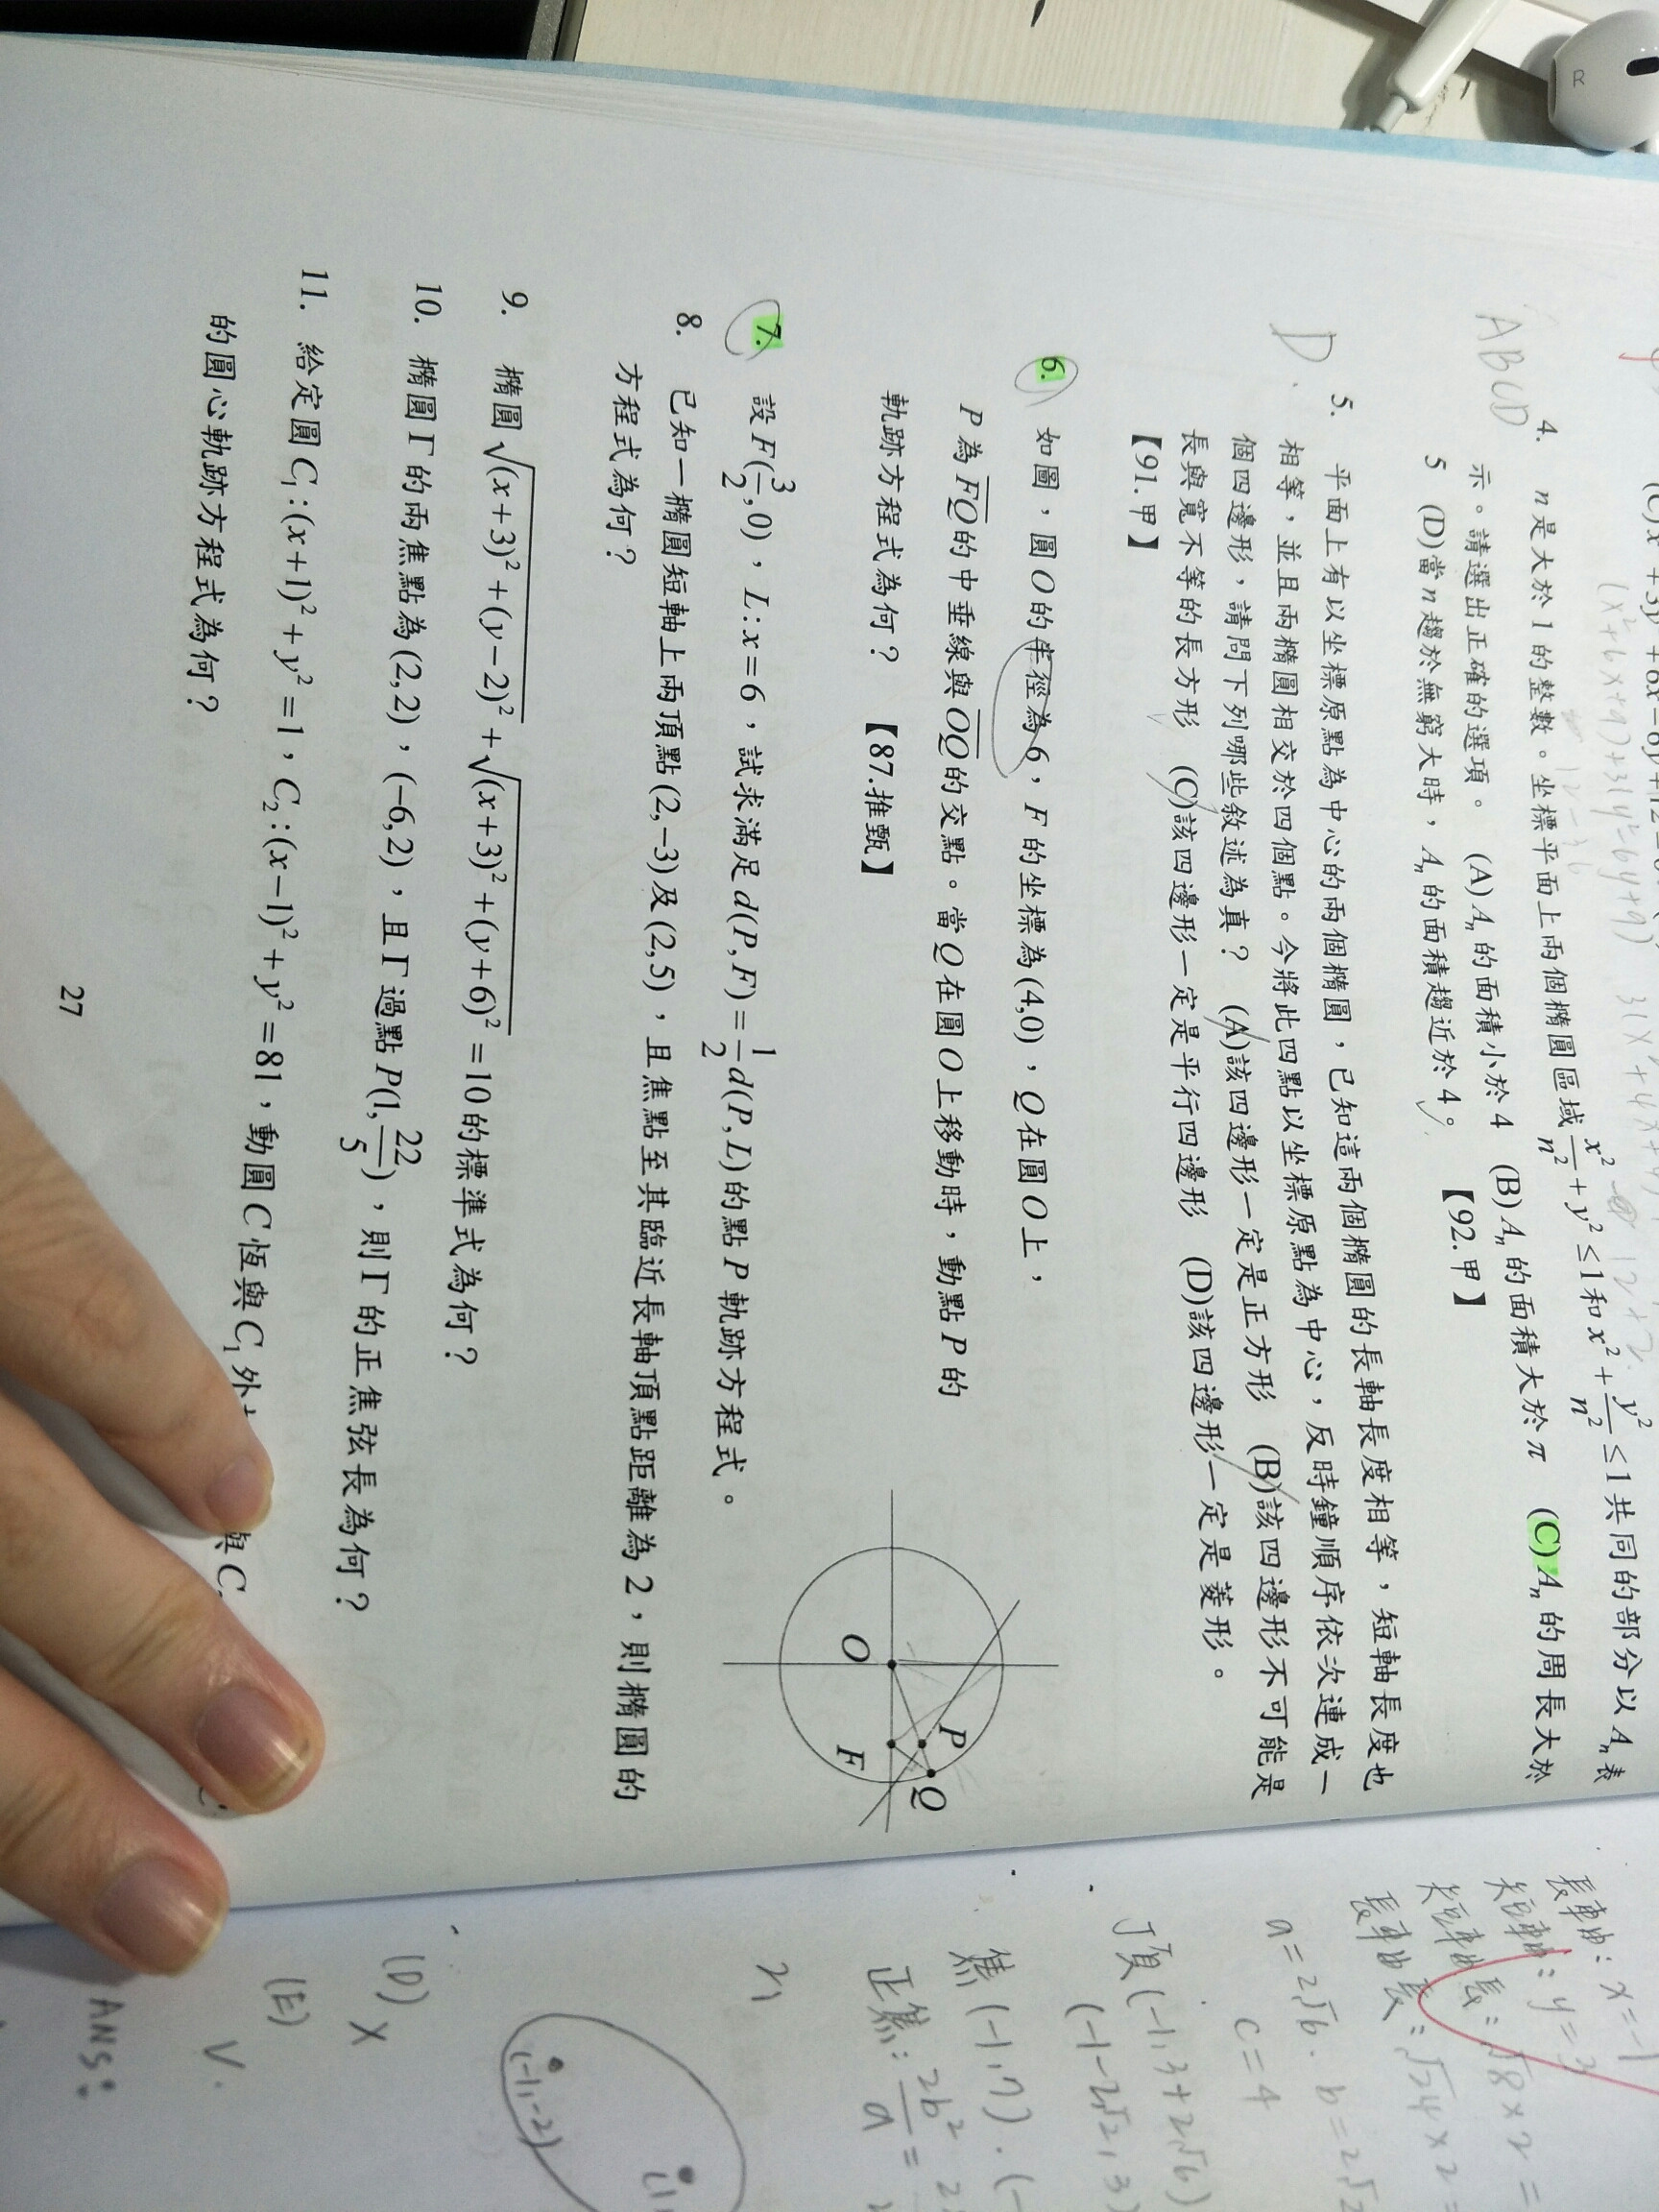 (C)x²+3y²+6x−6y+12=0
(x²+6x+9)+3(y²-6y+9)
ABCD
4. n是大於1的整數。坐標平面上兩個橢圓區域x²/n²+y²≤1和x²+y²/n²≤1共同的部分以Aₙ表
示。請選出正確的選項。 (A)Aₙ的面積小於4 (B)Aₙ的面積大於π (C)Aₙ的周長大於
5 (D)當n趨於無窮大時,Aₙ的面積趨近於4。 【92.甲】
D.
5. 平面上有以坐標原點為中心的兩個橢圓,已知這兩個橢圓的長軸長度相等,短軸長度也
相等,並且兩橢圓相交於四個點。今將此四點以坐標原點為中心,反時鐘順序依次連成一
個四邊形,請問下列哪些敘述為真? (A)該四邊形一定是正方形 (B)該四邊形不可能是
長與寬不等的長方形 (C)該四邊形一定是平行四邊形 (D)該四邊形一定是菱形。
【91.甲】
6. 如圖,圓O的半徑為6,F的坐標為(4,0),Q在圓O上,
P為F̅Q̅的中垂線與O̅Q̅的交點。當Q在圓O上移動時,動點P的
軌跡方程式為何? 【87.推甄】
O
P
F
Q
7. 設F(3/2,0),L:x=6,試求滿足d(P,F)=1/2d(P,L)的點P軌跡方程式。
8. 已知一橢圓短軸上兩頂點(2,−3)及(2,5),且焦點至其臨近長軸頂點距離為2,則橢圓的
方程式為何?
9. 橢圓√((x+3)²+(y−2)²)+√((x+3)²+(y+6)²)=10的標準式為何?
10. 橢圓Γ的兩焦點為(2,2),(−6,2),且Γ過點P(1,22/5),則Γ的正焦弦長為何?
11. 給定圓C₁:(x+1)²+y²=1,C₂:(x−1)²+y²=81,動圓C恆與C₁外
與C
的圓心軌跡方程式為何?
27
長軸:x=-1
短軸:y=3
短軸長:√8×2=
長軸長:√24×2=
a=2√6. b=2√2
c=4
頂(-1,3+2√6)
(-1-2√2,3)
焦(-1,7).(-
正焦:2b²/a=
(-1,-2)
(D) X
(E) V.
ANS: